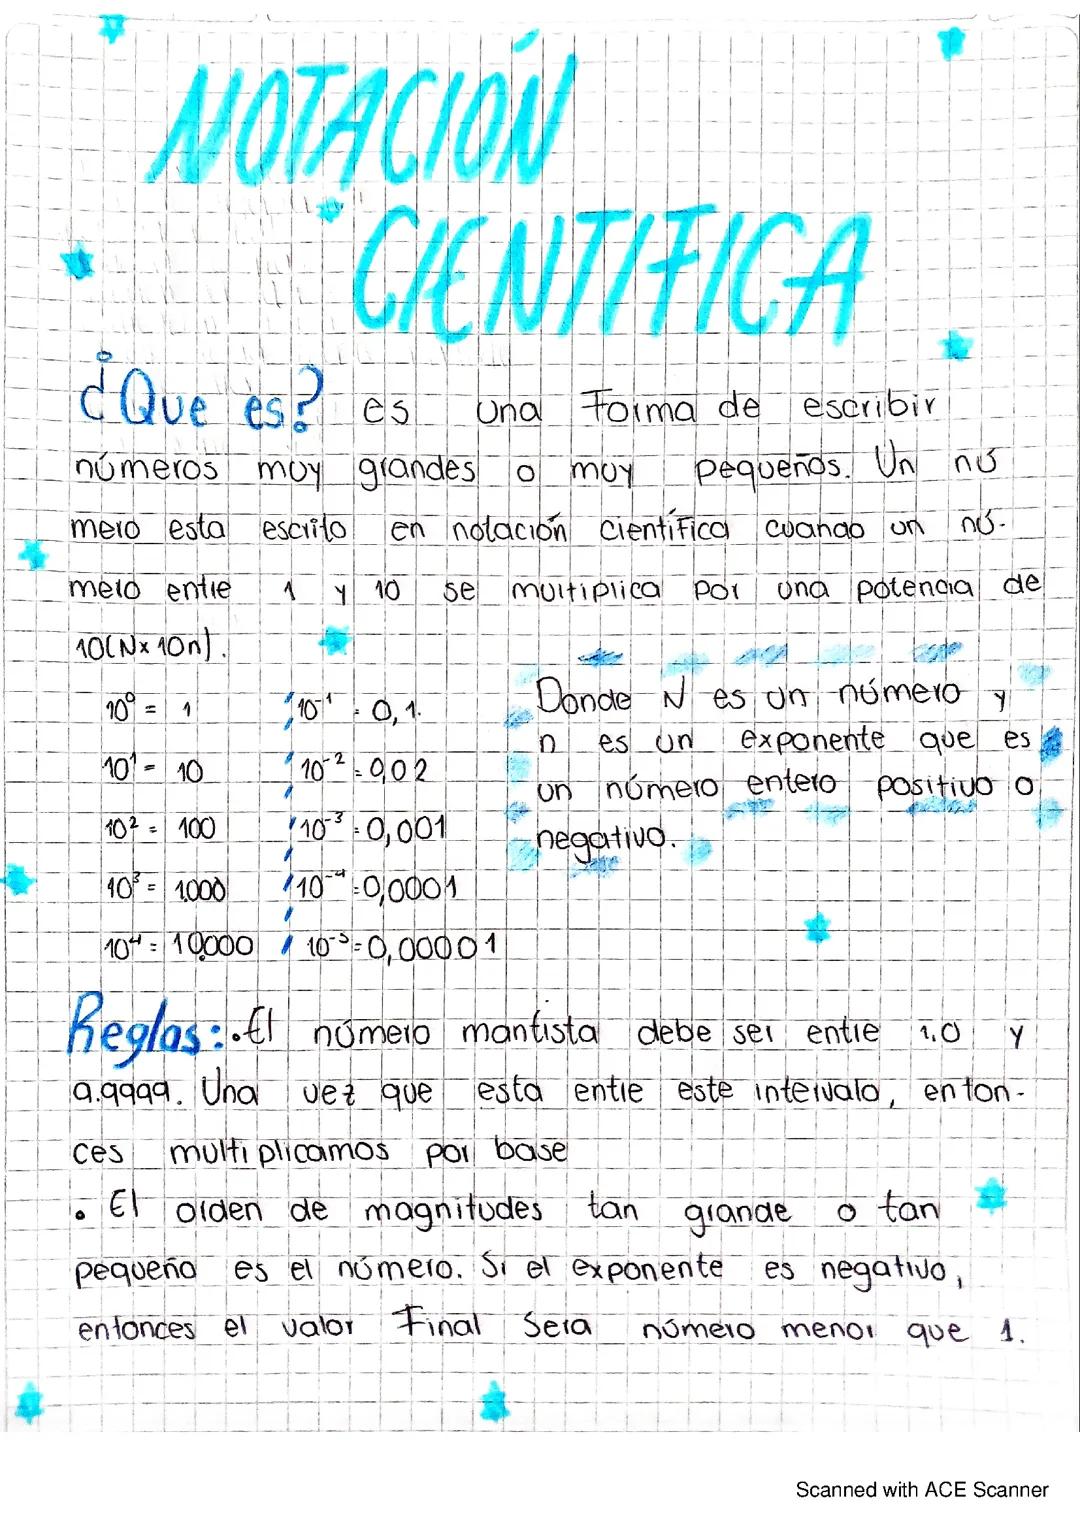 NOTACIÓN
CIENTIFICA
¿Que es? es una Forma de escribir
números muy grandes o muy pequeños. Un nú
mero esta escrito en notación científica cuando un nú-
mero entre 1 y 10 se multiplica por una potencia de
10(Nx 10n).
10⁰ = 1
10¹ = 10
10² = 100
10³ = 1,000
10⁴ = 10,000
10⁻¹ = 0,1.
10⁻² = 0,02
10⁻³ = 0,001
10⁻⁴ = 0,0001
10⁻⁵ = 0,00001
Donde N es un número y
n es un exponente que es
un número entero positivo o
negativo.
Reglas: • El número mantista debe ser entre 1,0 y
9.9999. Una vez que esta entre este intervalo, enton-
ces multiplicamos por base
• El orden de magnitudes tan grande o tan
pequeño es el número. Si el exponente es negativo,
entonces el valor Final Sera número menor que 1.
Scanned with ACE Scanner